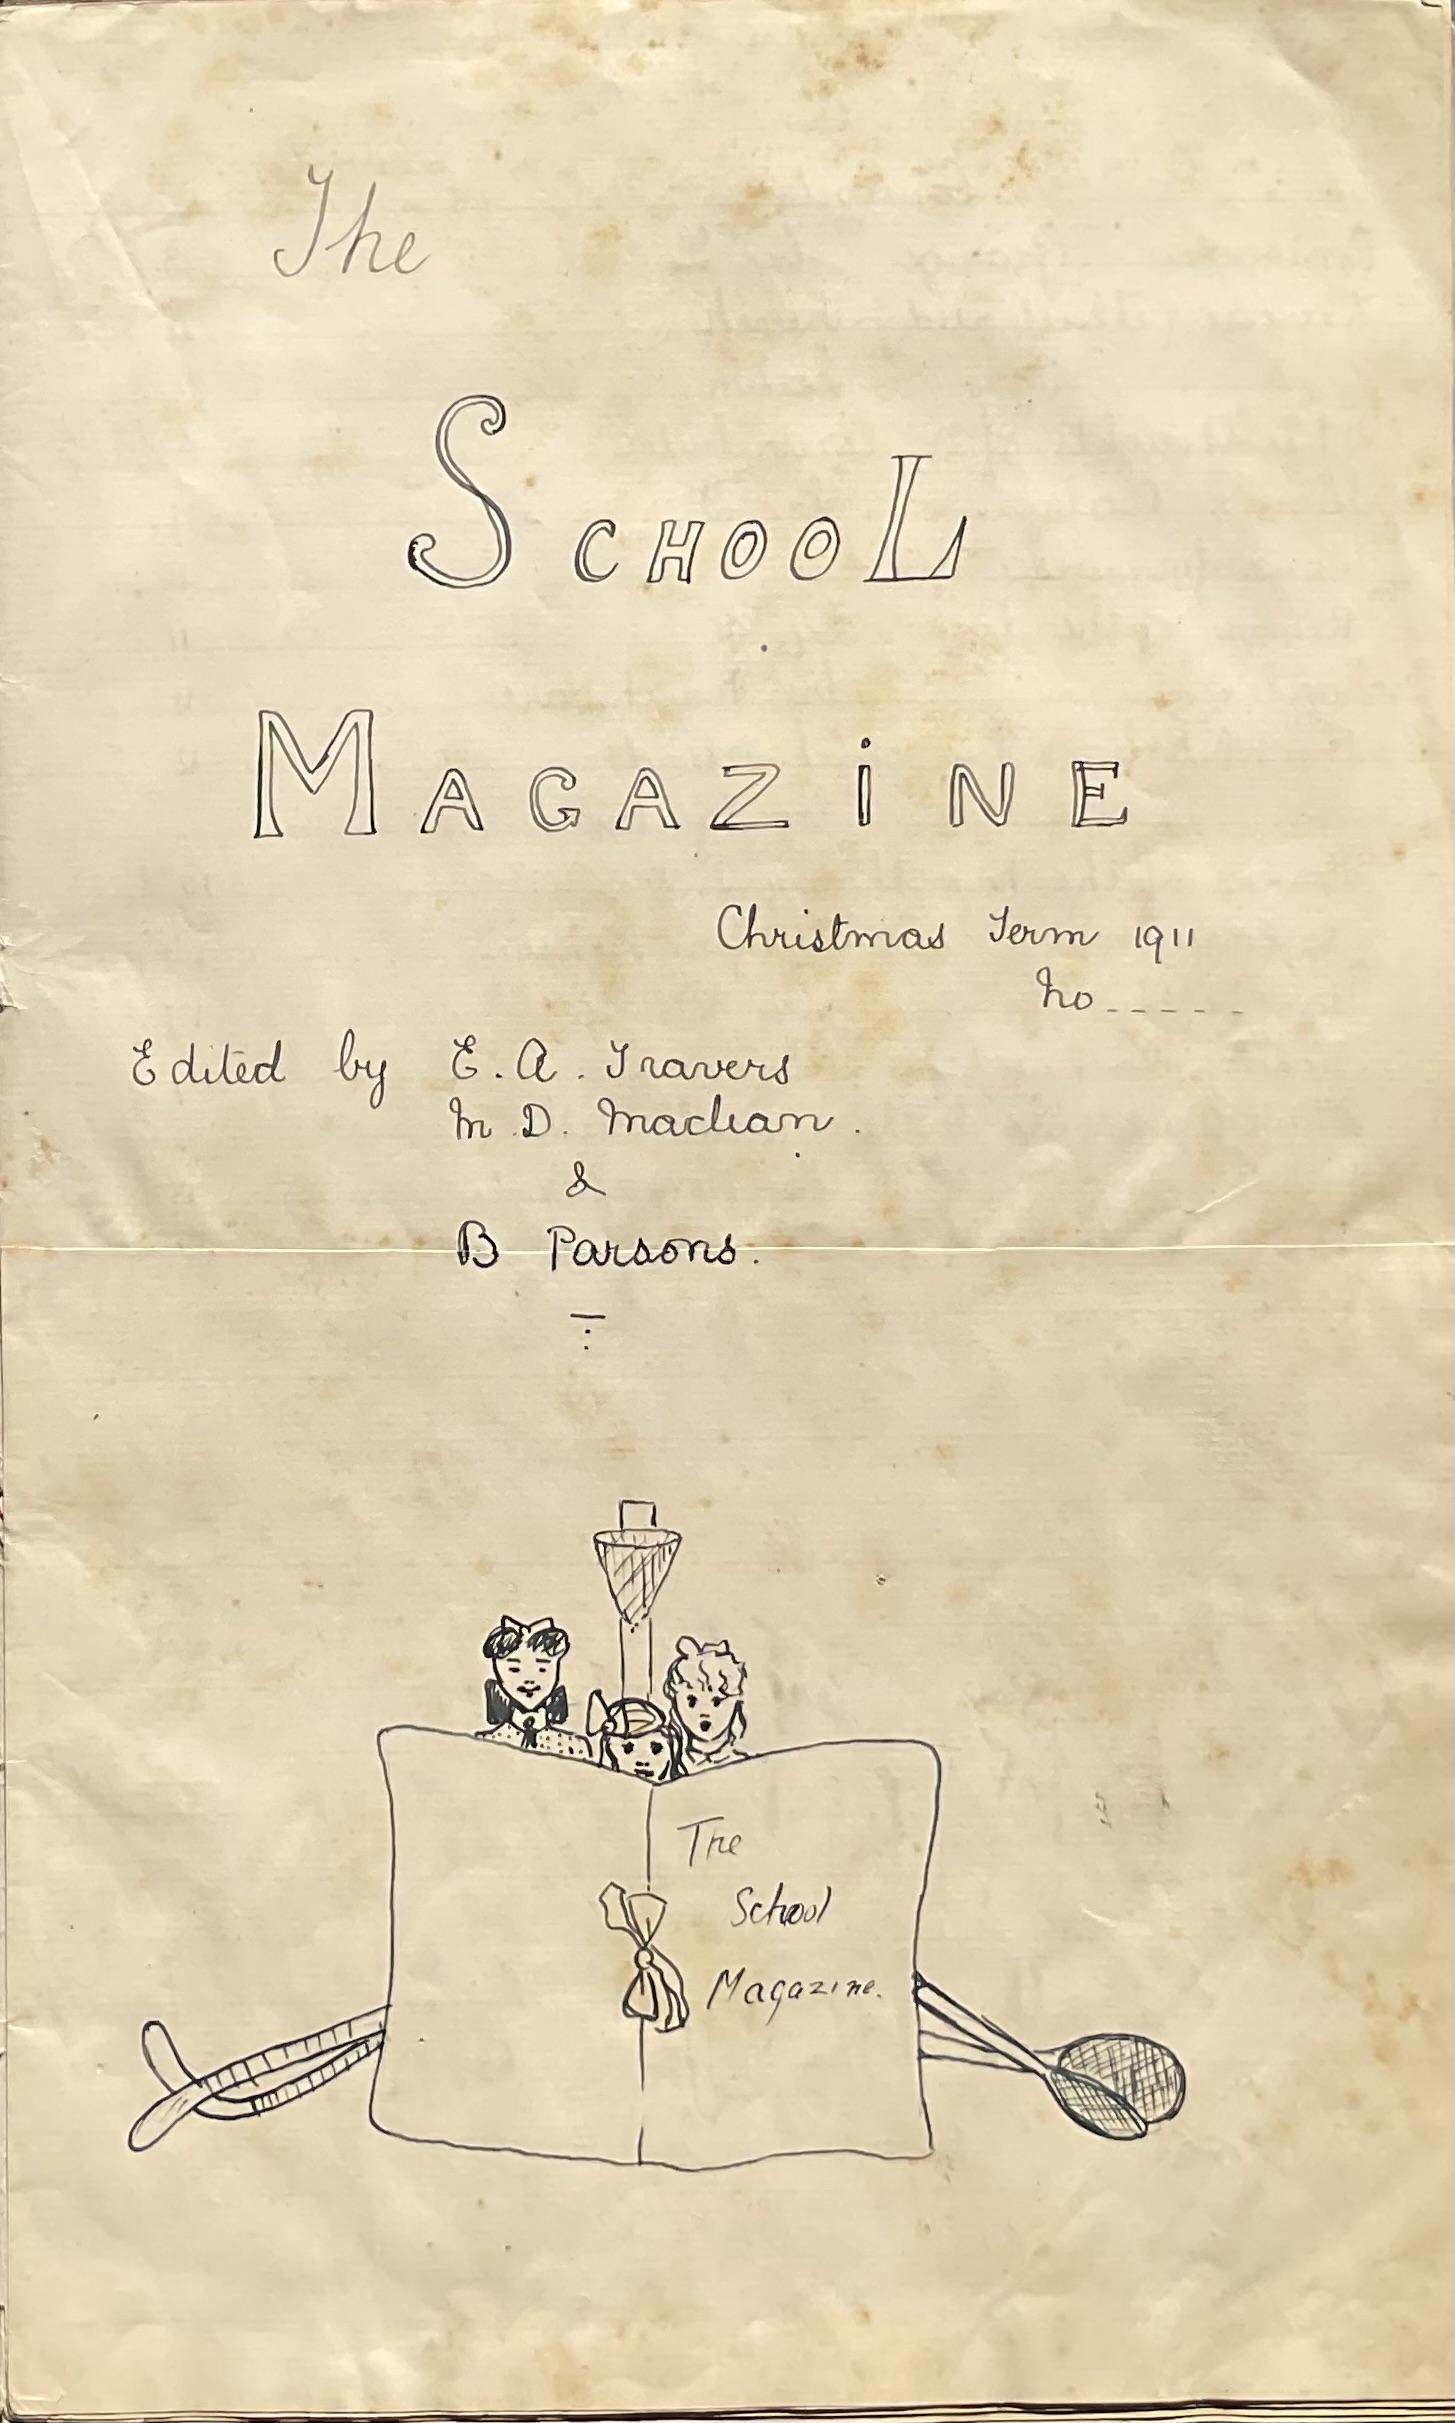 The
SCHOOL
MAGAZiNE
Christmas Term 1911
No.....
Edited by E. A. Travers
M. D. Maclean.
&
B Parsons.
The
School
Magazine.